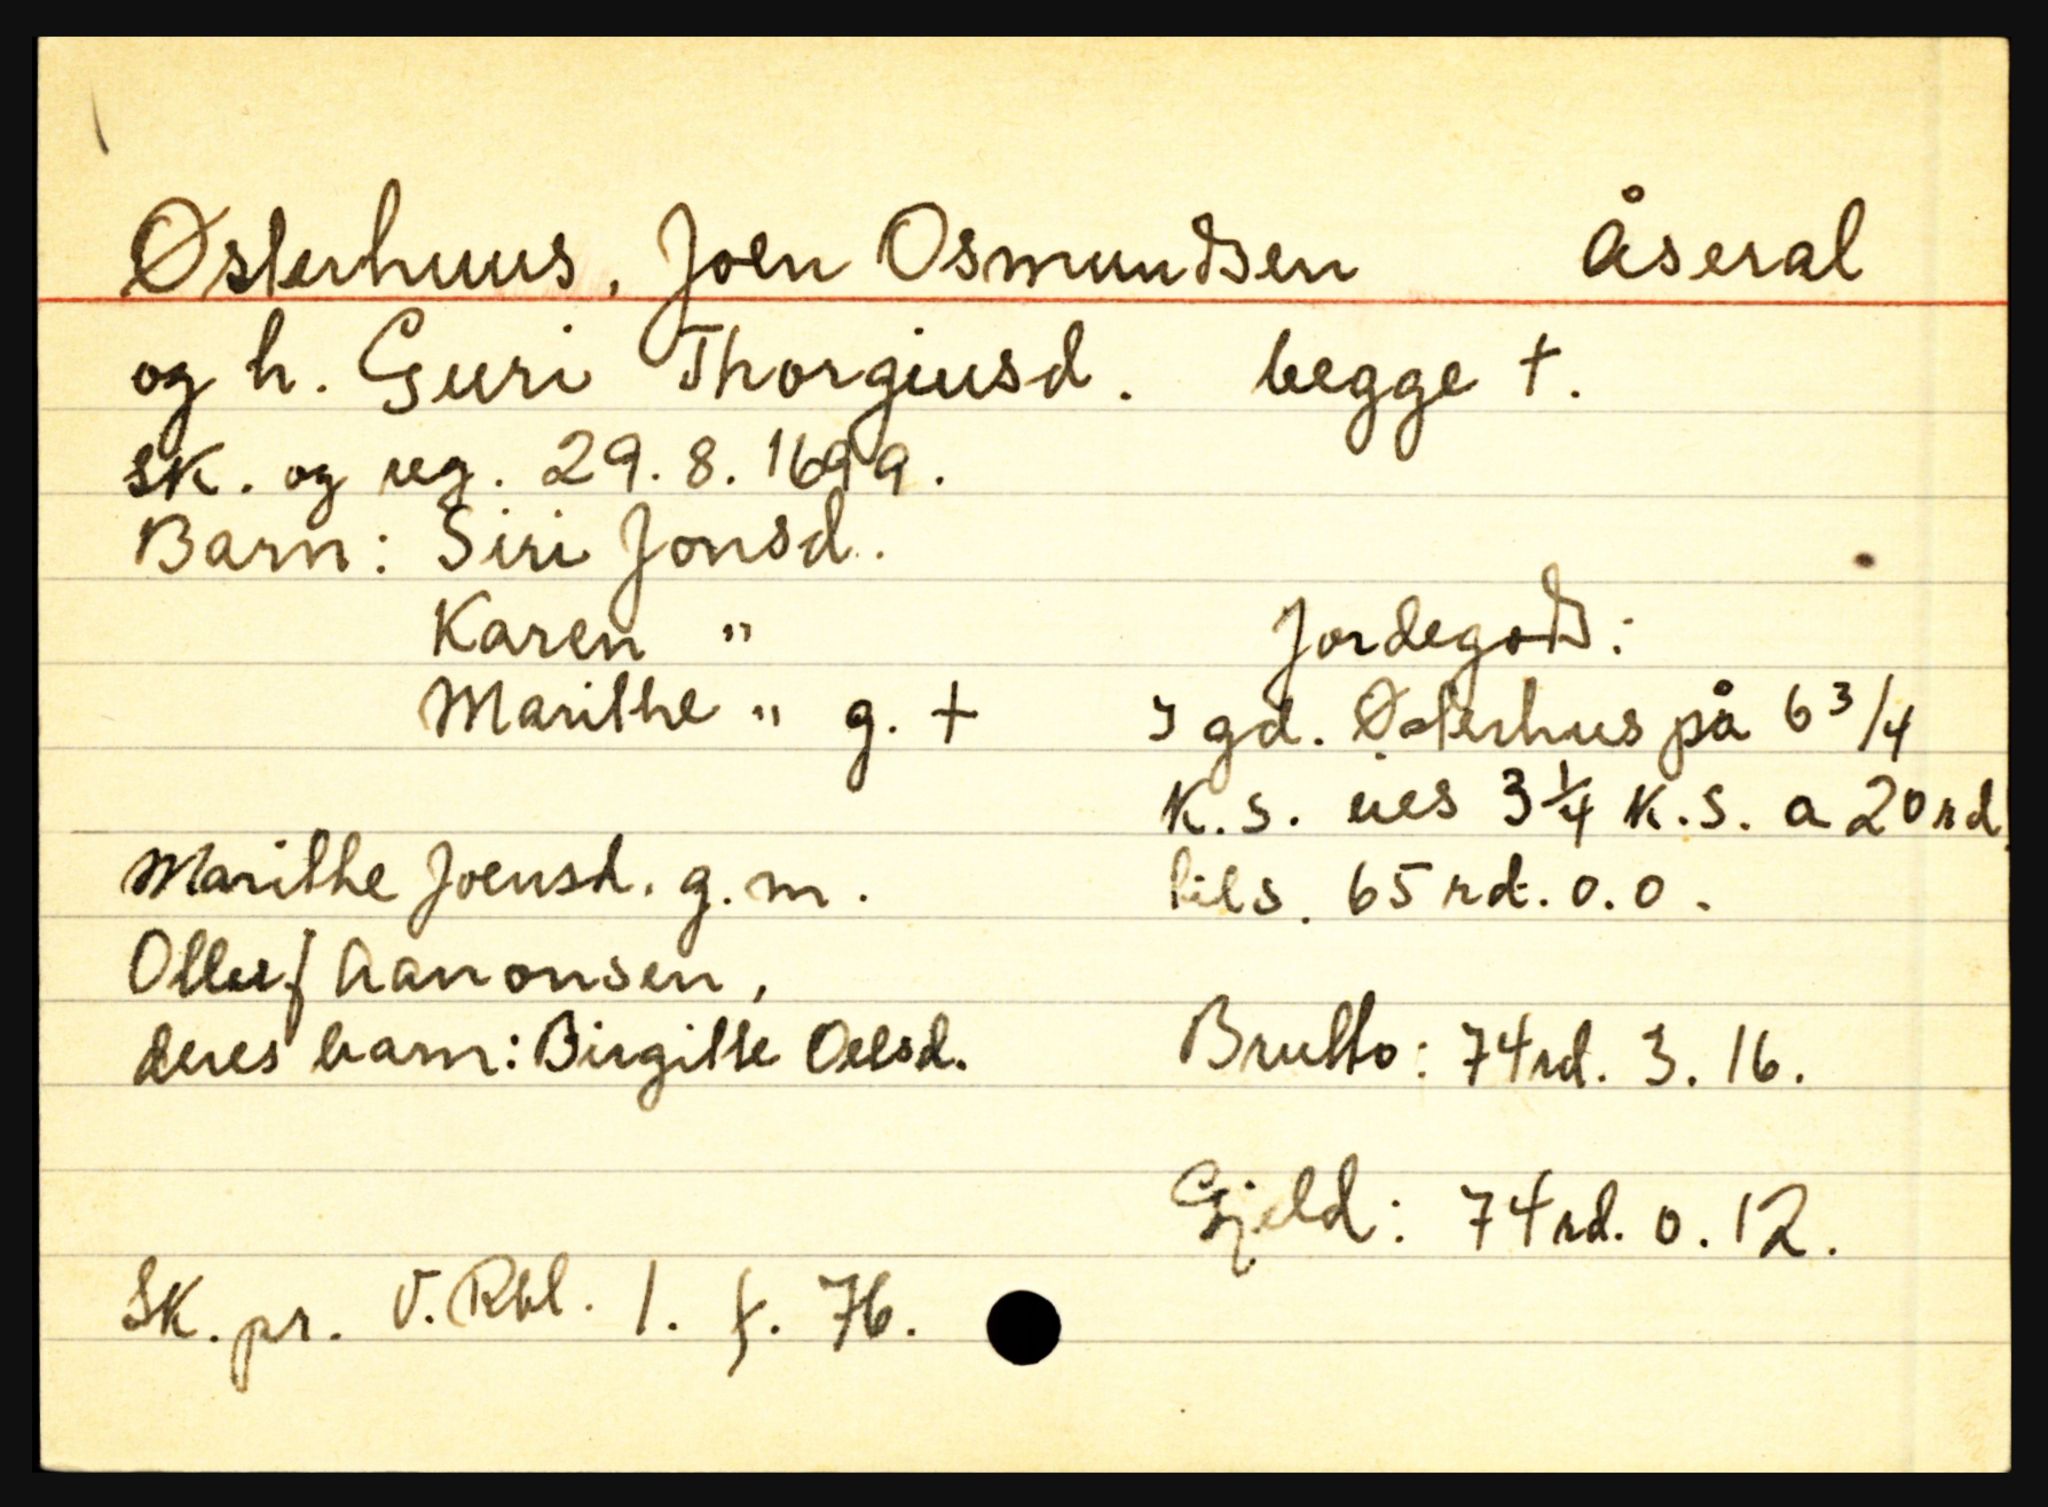 Østerhuus, Joen Osmundsen Åseral
og h. Guri Thorgiusd. begge †.
sk. og reg. 29.8.1699.
Barn: Siri Jonsd.
Karen "
Marithe " g. †
Marithe Joensd. g.m.
Olluf Aanonsen,
deres barn: Birgitte Oelsd.
Jordegods:
I gd. Østerhus på 6 3/4
K.s. eies 3 1/4 K.s. a 20 rd.
tils. 65 rd. 0.0.
Brutto: 74 rd. 3. 16.
Gjeld: 74 rd. 0. 12.
Sk. pr. V. Rbl. 1. f. 76.